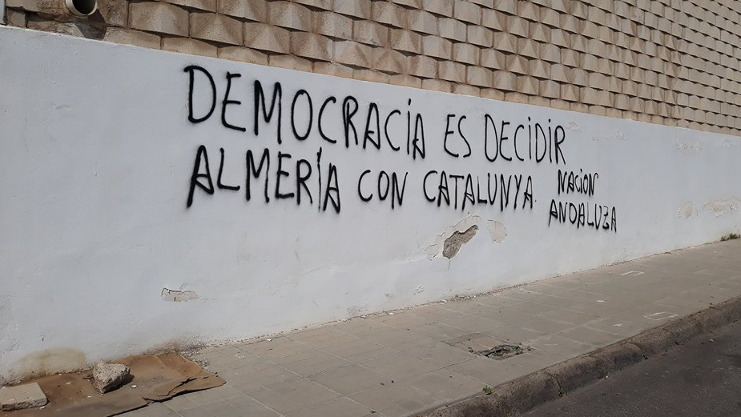 DEMOCRACiA ES DECiDiR
ALMERÍA CON CATALUNYA.
NACIÓN
ANDALUZA